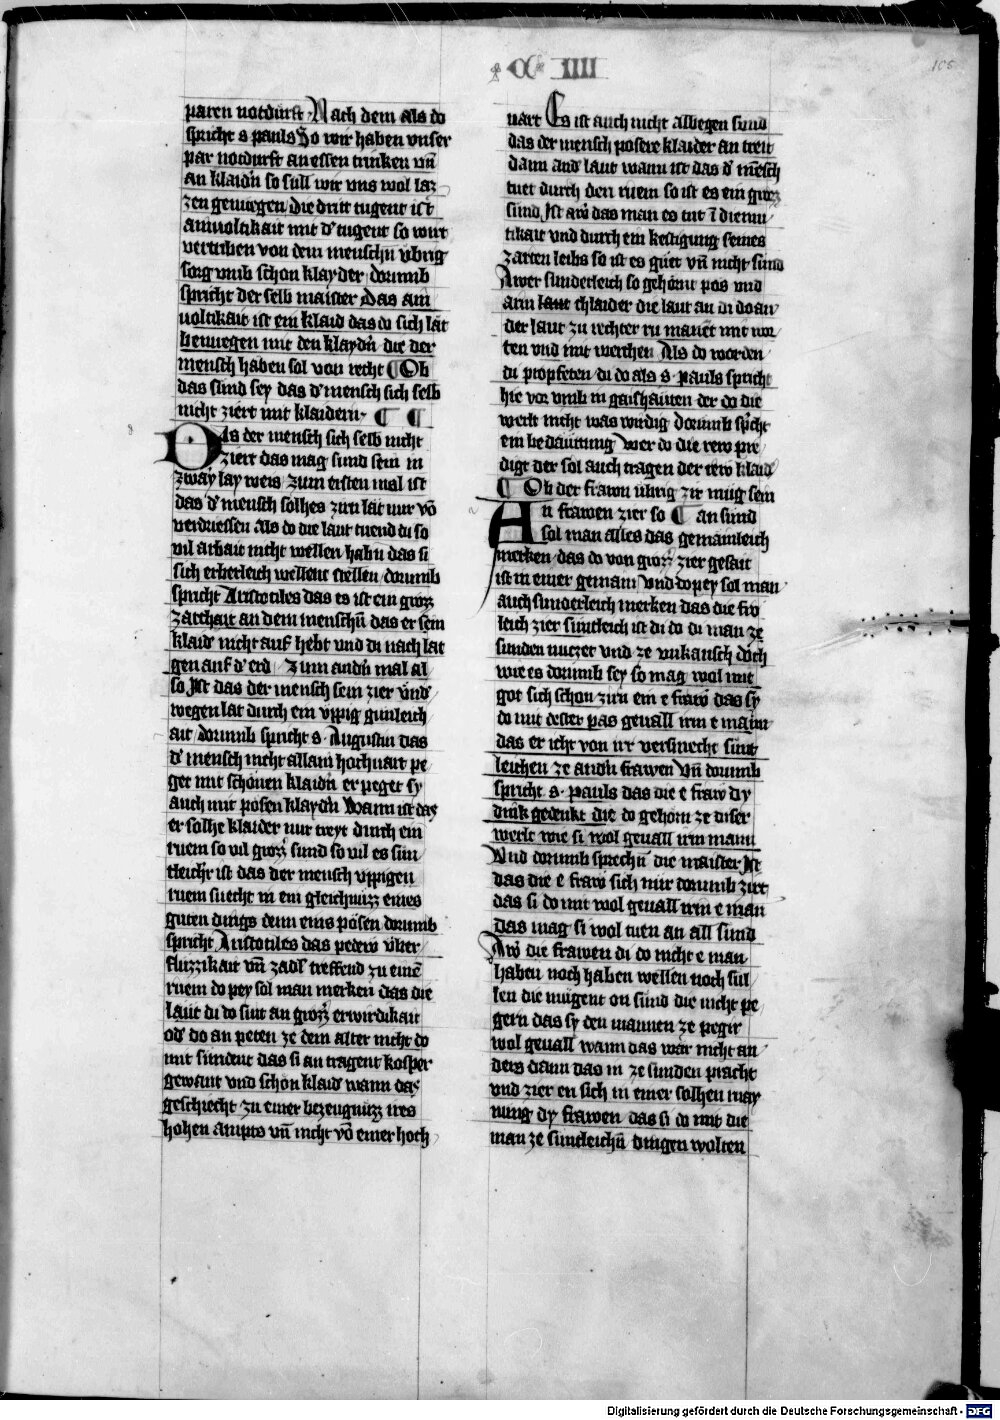 CC IIII
105
paren notdurft Nach dem als do
spricht s pauls So wir haben vnser
par notdurft an essen trinken vn̄
an klaidn̄ so sull wir vns wol laz
zen genuegen die dritt tugent ist
ainuoltikait mit d' tugent so wirt
vertriben von dem menschn̄ vbrig
sorg vmb schon klayder dorumb
spricht der selb maister Das ain
uoltikait ist ein klaid das do sich lat
benuegen mit den klaydn̄ die der
mensch haben sol von recht ¶ Ob
das sund sey das d' mensch sich selb
nicht ziert mit klaidern ¶ ¶
Das der mensch sich selb nicht
ziert das mag sund sein in
zway lay weis zum ersten mal ist
das d' mensch solhes zirn lat nur vō
verdriessen als do die laut tuend di so
vil arbait nicht wellen habn das si
sich erberleich wellent stellen dorumb
spricht Aristotiles das es ist ein groz
zarthait an dem menschn̄ das er sein
klaid nicht auf hebt vnd di nach lat
gen auf d' erd Zum andn̄ mal al
so Ist das der mensch sein zier vnd'
wegen lat durch ein vppig gunleich
ait dorumb spricht s. Augustin das
d' mensch nicht allain hochuart pe
get mit schonen klaidn̄ er peget sy
auch mit posen klaydn̄ Wann ist das
er solhe klaider nur treyt durch ein
ruem so vil grozz' sund so vil es sun
tleich'r ist das der mensch vppigen
ruem suecht in ein gleichnuzz eines
guten dings denn eins posen dorumb
spricht Aristotiles das pedew vber
fluzzikait vn̄ zadl' treffend zu einē
ruem do pey sol man merken das die
laut di do sint an grozz' erwirdikait
od' do an peten ze dem alter nicht do
mit sundent das si an tragent kosper
gewant vnd schon klaid wann das
geschiecht zu einer bezeugnuzz ires
hohen ampts vn̄ nicht vō einer hoch
uart Es ist auch nicht allwegen sund
das der mensch posere klaider an treit
dann and' laut wann ist das d' mēsch
tuet durch den ruem so ist es ein grozz
sund Ist aw' das man es tut ī diemu
tikait vnd durch ein kestigung seines
zarten leibs so ist es guet vn̄ nicht sund
Awer sunderleich so gehornt pos vnd
arm laut chlaider die laut an di do an
der laut zu rechter rw manēt mit wor
ten vnd mit werchen Als do worden
di propheten di do als s. pauls spricht
hie vor vmb in gaishauten der do die
werlt nicht was wirdig Dorumb spicht
ein bedautung wer do die rew pre
digt der sol auch tragen der rew klaid'
¶ Ob der frawn vbrig zir mug sein
An frawen zier so ¶ an sund
sol man alles das gemainleich
merken das do von grozz' zier gesait
ist in einer gemain Vnd do pey sol man
auch sunderleich merken das die frō
leich zier suntleich ist di do di man ze
sunden raizet vnd ze vnkausch doch
wie es dorumb sey so mag wol mit
got sich schon zirn ein e fraw das sy
do mit dester pas geuall irm e mann
das er icht von irr versmecht sunt
leichen ze andn̄ frawen Vn̄ dorumb
spricht s. pauls das die e fraw dy
dink gedenkt die do gehorn ze diser
werlt wie si wol geuall irm mann
Vnd dorumb sprechn̄ die maister Ist
das die e fraw sich nur dorumb zirt
das si do mit wol geuall irm e man
das mag si wol tuen an all sund
Aw' die frawen di do nicht e man
haben noch haben wellen noch sul
len die mugent on sund die nicht pe
gern das sy den mannen ze pegir
wol geuall wann das war nicht an
ders dann das in ze sunden pracht
vnd zier en sich in einer solhen may
nung dy frawen das si do mit die
man ze suntleichn̄ dingen wolten
Digitalisierung gefördert durch die Deutsche Forschungsgemeinschaft - DFG